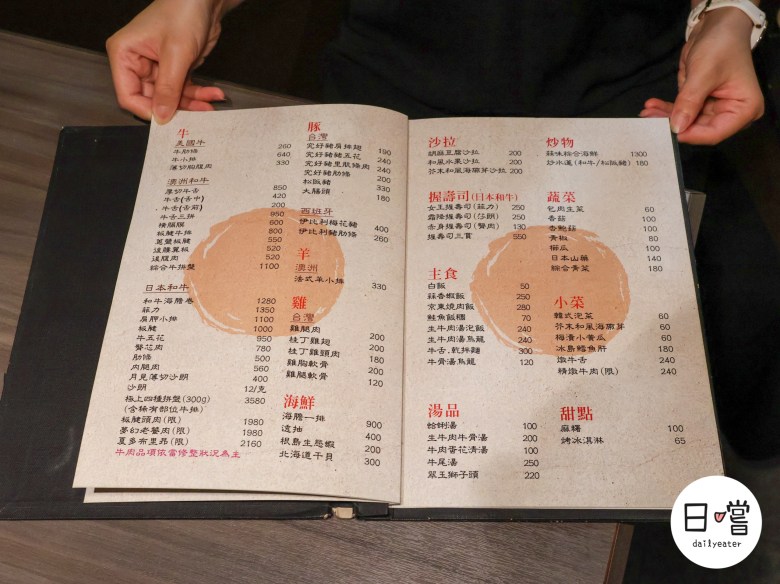 牛
美國牛
牛肋條 260
牛小排 640
薄切胸腹肉 330
澳洲和牛
薄切牛舌 850
牛舌(舌中) 420
牛舌(舌前)
牛舌三拼 950
橫膈膜 600
板腱牛排 800
蔥鹽板腱 550
520
520
綜合牛拼盤 1100
日本和牛
和牛海膽卷 1280
菲力 1350
肩胛小排 1100
板腱 1000
牛五花 950
臀芯肉 780
肋條 500
內腿肉 560
月見薄切沙朗 400
沙朗 12/克
極上四種拼盤(300g) 3580
(含稀有部位牛排)
板腱頭肉(限) 1980
夢幻老饕肉(限) 1980
夏多布里昂(限) 2160
牛肉品項依當修整狀況為主
豚
台灣
究好豬肩排翅 190
究好豬五花 240
究好豬里肌條肉 240
究好豬肋條 200
松阪豬 330
大腸頭 180
西班牙
伊比利梅花豬 400
伊比利豬肋條 260
羊
澳洲
法式羊小排 330
雞
台灣
雞腿肉 200
桂丁雞翅 200
桂丁雞頸肉 200
雞胸軟骨 180
雞腿軟骨 120
海鮮
海膽一排 900
透抽 400
根島生態蝦 200
北海道干貝 300
沙拉
胡麻豆腐沙拉 200
和風水果沙拉 200
芥末和風海珊芽沙拉 200
握壽司(日本和牛)
女王握壽司(菲力) 250
霜降握壽司(莎朗) 250
赤身握壽司(臀肉) 130
握壽司三貫 550
主食
白飯 50
蒜香蝦飯 250
京東燒肉飯 280
鮭魚飯糰 70
生牛肉湯泡飯 240
生牛肉湯烏龍 240
牛舌乾拌麵 300
牛骨湯烏龍 120
湯品
蛤蜊湯 100
生牛肉牛骨湯 200
牛肉香花清湯 100
牛尾湯 250
翠玉獅子頭 220
炒物
蒜味綜合海鮮 1300
炒水蓮(和牛/松阪豬) 180
蔬菜
包肉生菜 60
香菇 100
杏鮑菇 100
青椒 80
櫛瓜 100
日本山藥 140
綜合青菜 180
小菜
韓式泡菜 60
芥末和風海珊芽 60
梅漬小黃瓜 60
冰島鱈魚肝 180
燉牛舌 240
精燉牛肉(限) 240
甜點
麻糬 100
烤冰淇淋 65
日嚐
dailyeater